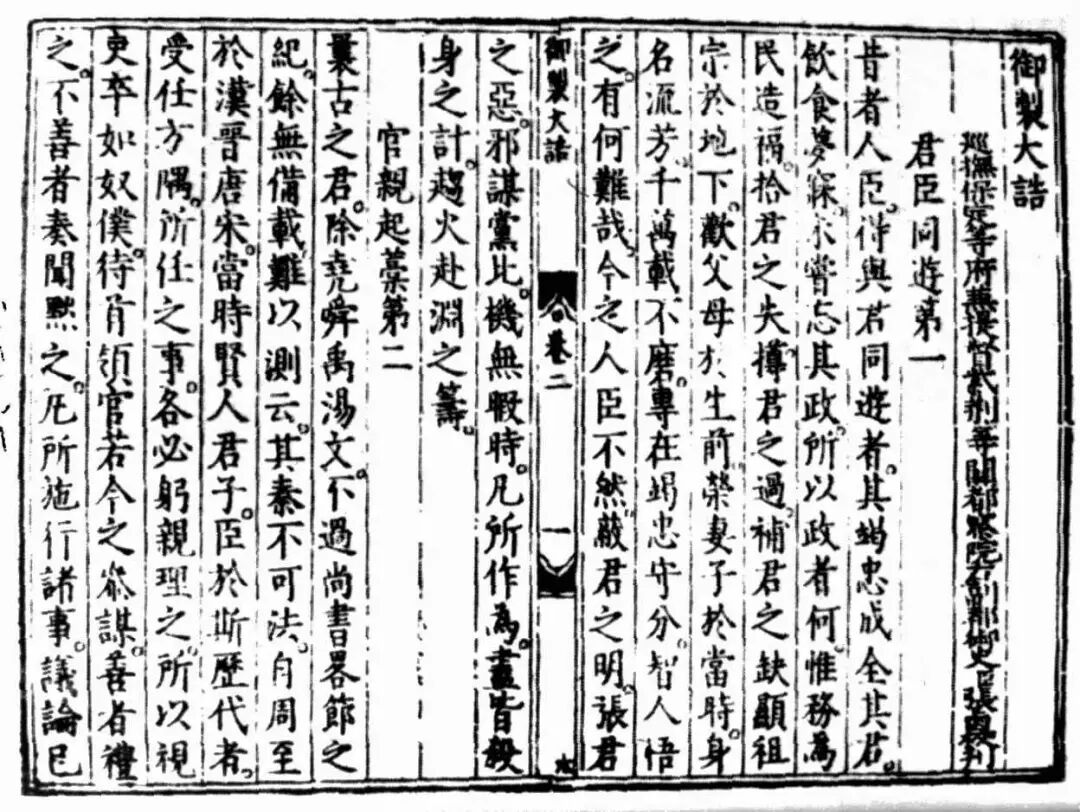 御製大誥
巡撫保定等府兼提督等關都察院右副都御史臣張
君臣同遊第一
昔者人臣。得與君同遊者。其竭忠成全其君。
飲食夢寐。未嘗忘其政。所以政者何。惟務為
民造福。拾君之失。撙君之過。補君之缺。顯祖
宗於地下。歡父母於生前。榮妻子於當時。身
名流芳。千萬載不磨。專在竭忠守分。智人悟
之。有何難哉。今之人臣不然。蔽君之明。張君
御製大誥 卷二 一
之惡。邪謀黨比。機無暇時。凡所作為。盡皆殺
身之計。趨火赴淵之籌。
官親起藁第二
曩古之君。除堯舜禹湯文。不過尚書畧節之
紀。餘無備載。難以測云。其秦不可法。自周至
於漢晉唐宋。當時賢人君子。臣於斯歷代者。
受任方隅。所任之事。各必躬親理之。所以視
吏卒如奴僕。待首領官若今之叅謀。善者禮
之。不善者奏聞黜之。凡所施行諸事。議論已